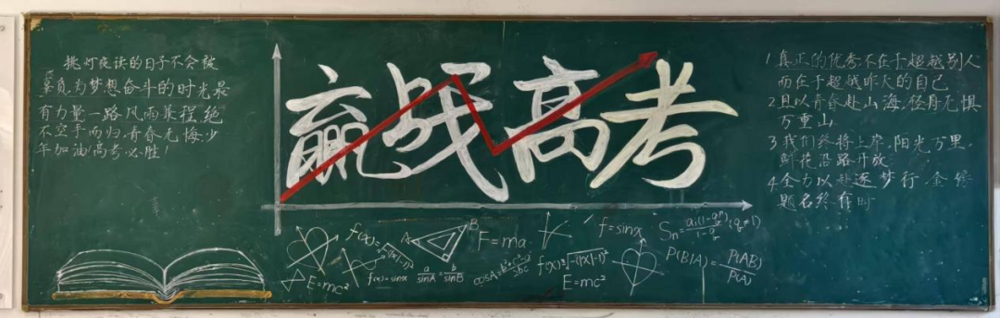 挑灯夜读的日子不会被
辜负,为梦想奋斗的时光最
有力量一路风雨兼程,绝
不空手而归,青春无悔,少
年加油,高考必胜!
赢战高考
1.真正的优秀不在于超越别人
而在于超越昨天的自己
2.且以青春赴山海,径自无惧
万重山
3.我们终将上岸,阳光万里,
鲜花沿路开放
4.全力以赴逐梦行,金榜
题名终有时
E=mc²
f(x)=sinx
a/sinA=b/sinB
A
B
F=ma
E=mc²
f=sinx
Sn=a₁(1-qⁿ)/1-q (q≠1)
P(B|A)=P(AB)/P(A)